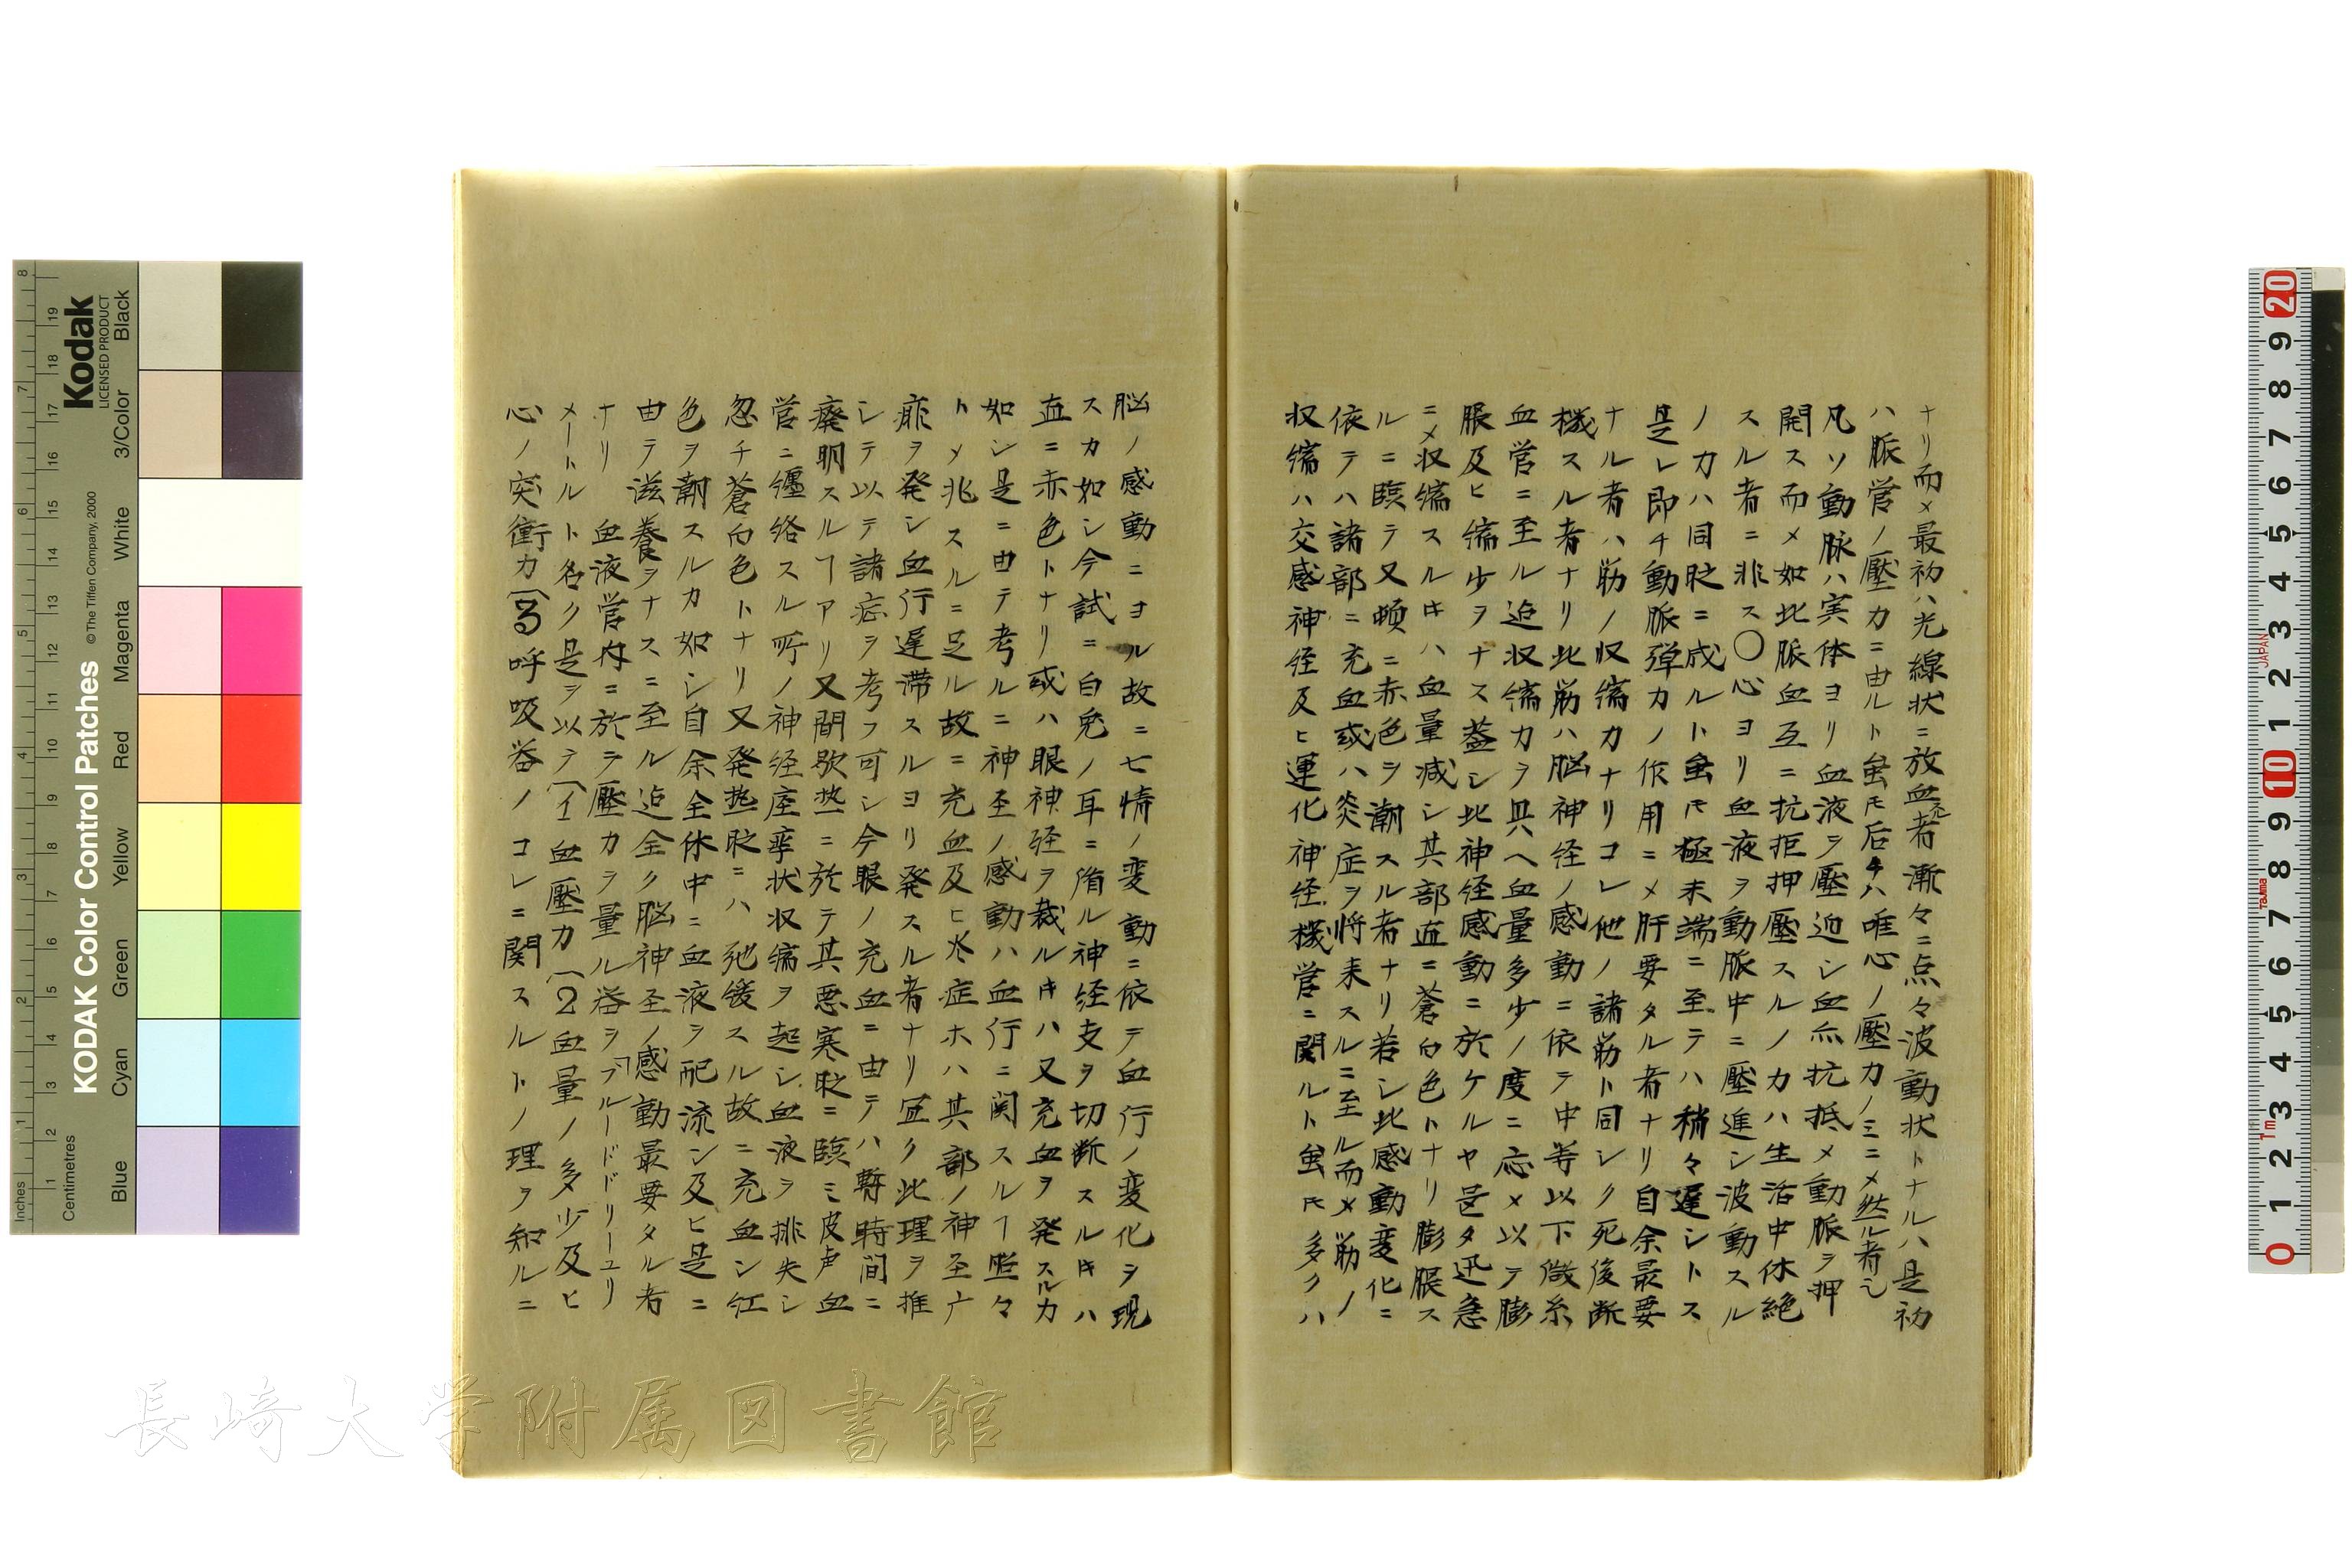 ナリ而メ最初ハ光線状ニ放血スル者漸々ニ点々波動状トナルハ是初
ハ脈管ノ壓力ニ由ルト雖モ后チハ唯心ノ壓力ノミニメ然ル者也
凡ソ動脉ハ実体ヨリ血液ヲ壓迫シ血亦抗抵メ動脈ヲ押
開ス而メ如此脈血互ニ抗拒押壓スルノ力ハ生活中休絶
スル者ニ非ス〇心ヨリ血液ヲ動脈中ニ壓進シ波動スル
ノ力ハ同時ニ成ルト雖モ極末端ニ至テハ稍々遅シトス
是レ即チ動脈弾力ノ作用ニメ肝要タル者ナリ自余最要
ナル者ハ筋ノ収縮力ナリコレ他ノ諸筋ト同シク死後断
機スル者ナリ此筋ハ脳神経ノ感動ニ依テ中等以下微糸
血管ニ至ル迠収縮力ヲ具ヘ血量多少ノ度ニ応メ以テ膨
脹及ヒ縮少ヲナス蓋シ此神経感動ニ於ケルヤ甚タ迅急
ニメ収縮スル片ハ血量減シ其部直ニ蒼白色トナリ膨脹ス
ルニ臨テ又頓ニ赤色ヲ潮スル者ナリ若シ此感動変化ニ
依テハ諸部ニ充血或ハ炎症ヲ将来スルニ至ル而メ筋ノ
収縮ハ交感神経及ヒ運化神経機営ニ関ルト雖モ多クハ
脳ノ感動ニヨル故ニ七情ノ変動ニ依テ血行ノ変化ヲ現
スカ如シ今試ニ白兎ノ耳ニ循ル神経支ヲ切断スル片ハ
直ニ赤色トナリ或ハ眼神経ヲ裁ル片ハ又充血ヲ発スルカ
如シ是ニ由テ考ルニ神圣ノ感動ハ血行ニ関スルヿ照々
トメ兆スルニ足ル故ニ充血及ヒ水症ホハ其部ノ神圣亡
痱ヲ発シ血行遅滞スルヨリ発スル者ナリ冝ク此理ヲ推
シテ以テ諸症ヲ考フ可シ今眼ノ充血ニ由テハ暫時間ニ
癈明スルヿアリ又間歇热ニ於テ其悪寒時ニ臨ミ皮声血
管ニ纏络スル所ノ神経痙挛状収縮ヲ起シ血液ヲ排失シ
忽チ蒼白色トナリ又発热時ニハ弛緩スル故ニ充血シ红
色ヲ潮スルカ如シ自余全体中ニ血液ヲ配流シ及ヒ是ニ
由テ滋養ヲナスニ至ル迠全ク脳神圣ノ感動最要タル者
ナリ 血液管内ニ於テ壓力ヲ量ル器ヲ「ブルードドリーユリ
メートルト名ク是ヲ以テ(1血壓力(2血量ノ多少及ヒ
心ノ突衝力(3呼吸器ノコレニ関スルトノ理ヲ知ルニ
長崎大学附属図書館
Kodak
LICENSED PRODUCT
KODAK Color Control Patches
© The Tiffen Company, 2000
Inches
Centimetres
Blue
Cyan
Green
Yellow
Red
Magenta
White
3/Color
Black
JAPAN
Tajima